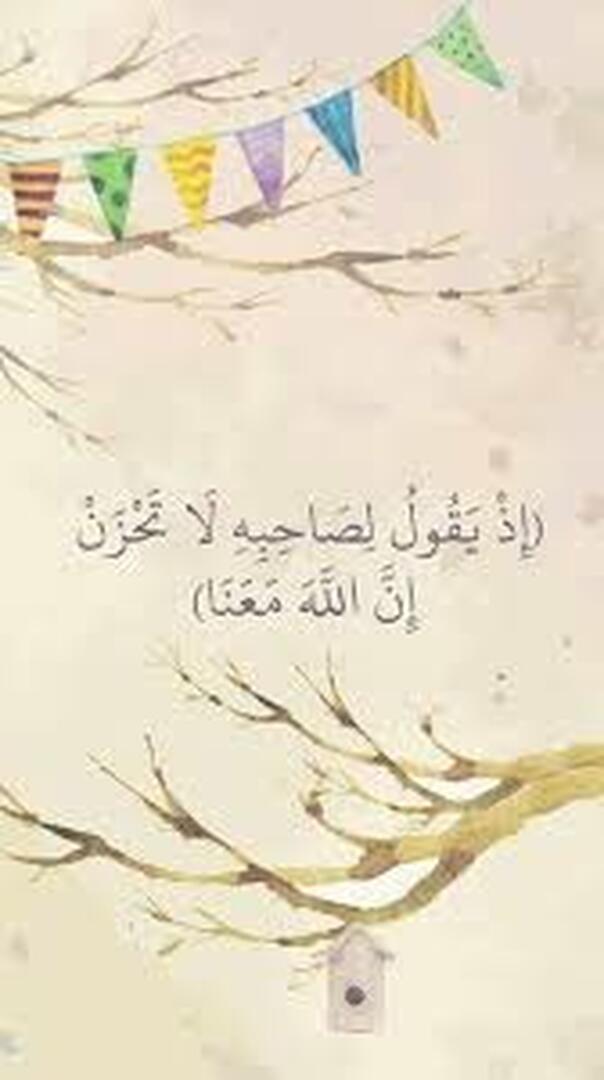 (إِذْ يَقُولُ لِصَاحِبِهِ لَا تَحْزَنْ
إِنَّ اللَّهَ مَعَنَا)